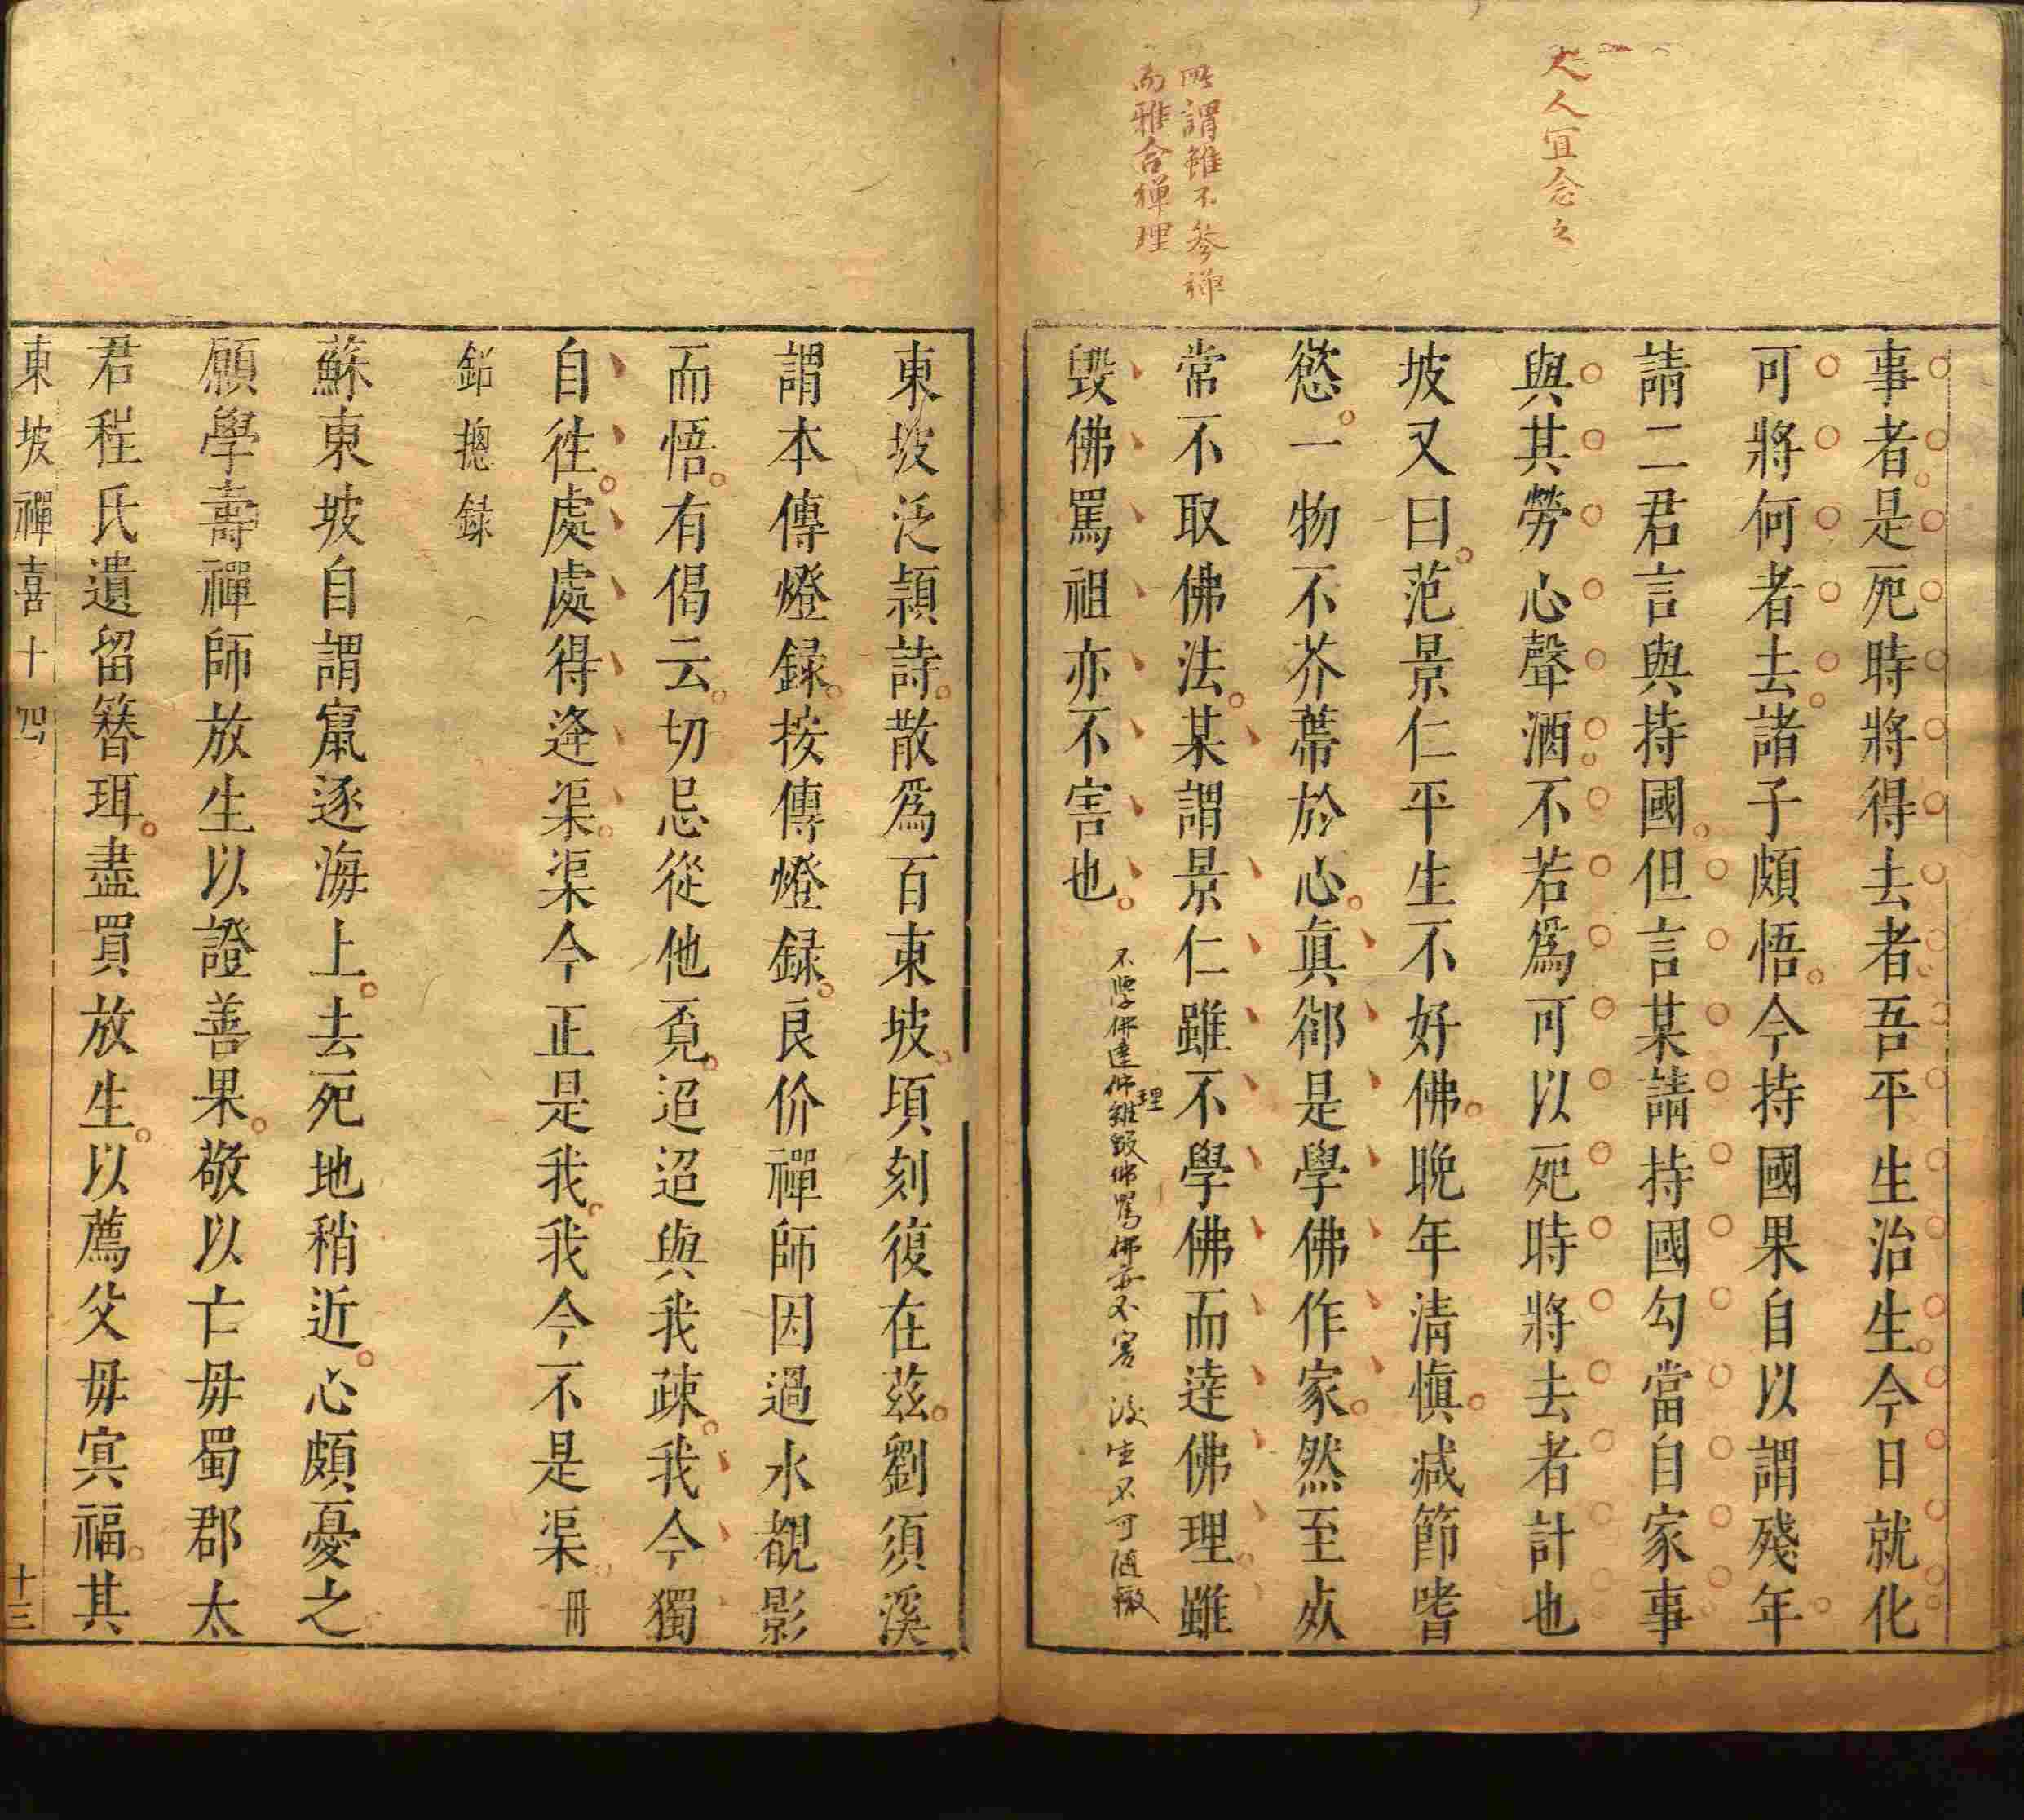 人宜念之
所謂雖不參禪
而雅合禪理
事者是死時將得去者吾平生治生今日就化
可將何者去諸子頗悟今持國果自以謂殘年
請二君言與持國但言某請持國勾當自家事
與其勞心聲酒不若爲可以死時將去者計也
坡又曰范景仁平生不好佛晚年清愼减節嗜
慾一物不芥蔕於心眞郤是學佛作家然至㱔
常不取佛法某謂景仁雖不學佛而逹佛理雖
毁佛罵祖亦不害也
不學佛達佛理雖毀佛罵佛亦不害 後生不可隨轍
東坡泛潁詩散爲百東坡頃刻復在兹劉須溪
謂本傳燈録按傳燈録良价禪師因過水覩影
而悟有偈云切忌從他覔迢迢與我疎我今獨
自徃處處得逄渠渠今正是我我今不是渠冊
鉛摠録
蘇東坡自謂竄逐海上去死地稍近心頗憂之
願學壽禪師放生以證善果敬以亡毋蜀郡太
君程氏遺留簪珥盡買放生以薦父毋㝠福其
東坡禪喜十四
十三